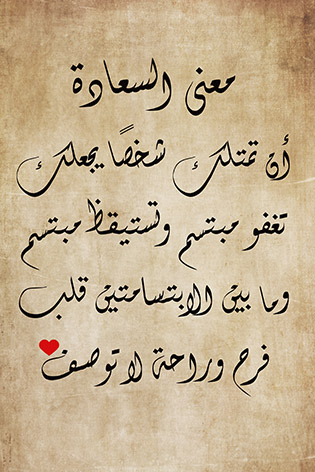 معنى السعادة
أن تمتلك شخصًا يجعلك
تغفو مبتسم وتستيقظ مبتسم
وما بين الابتسامتين قلب
فرح وراحة لا توصف